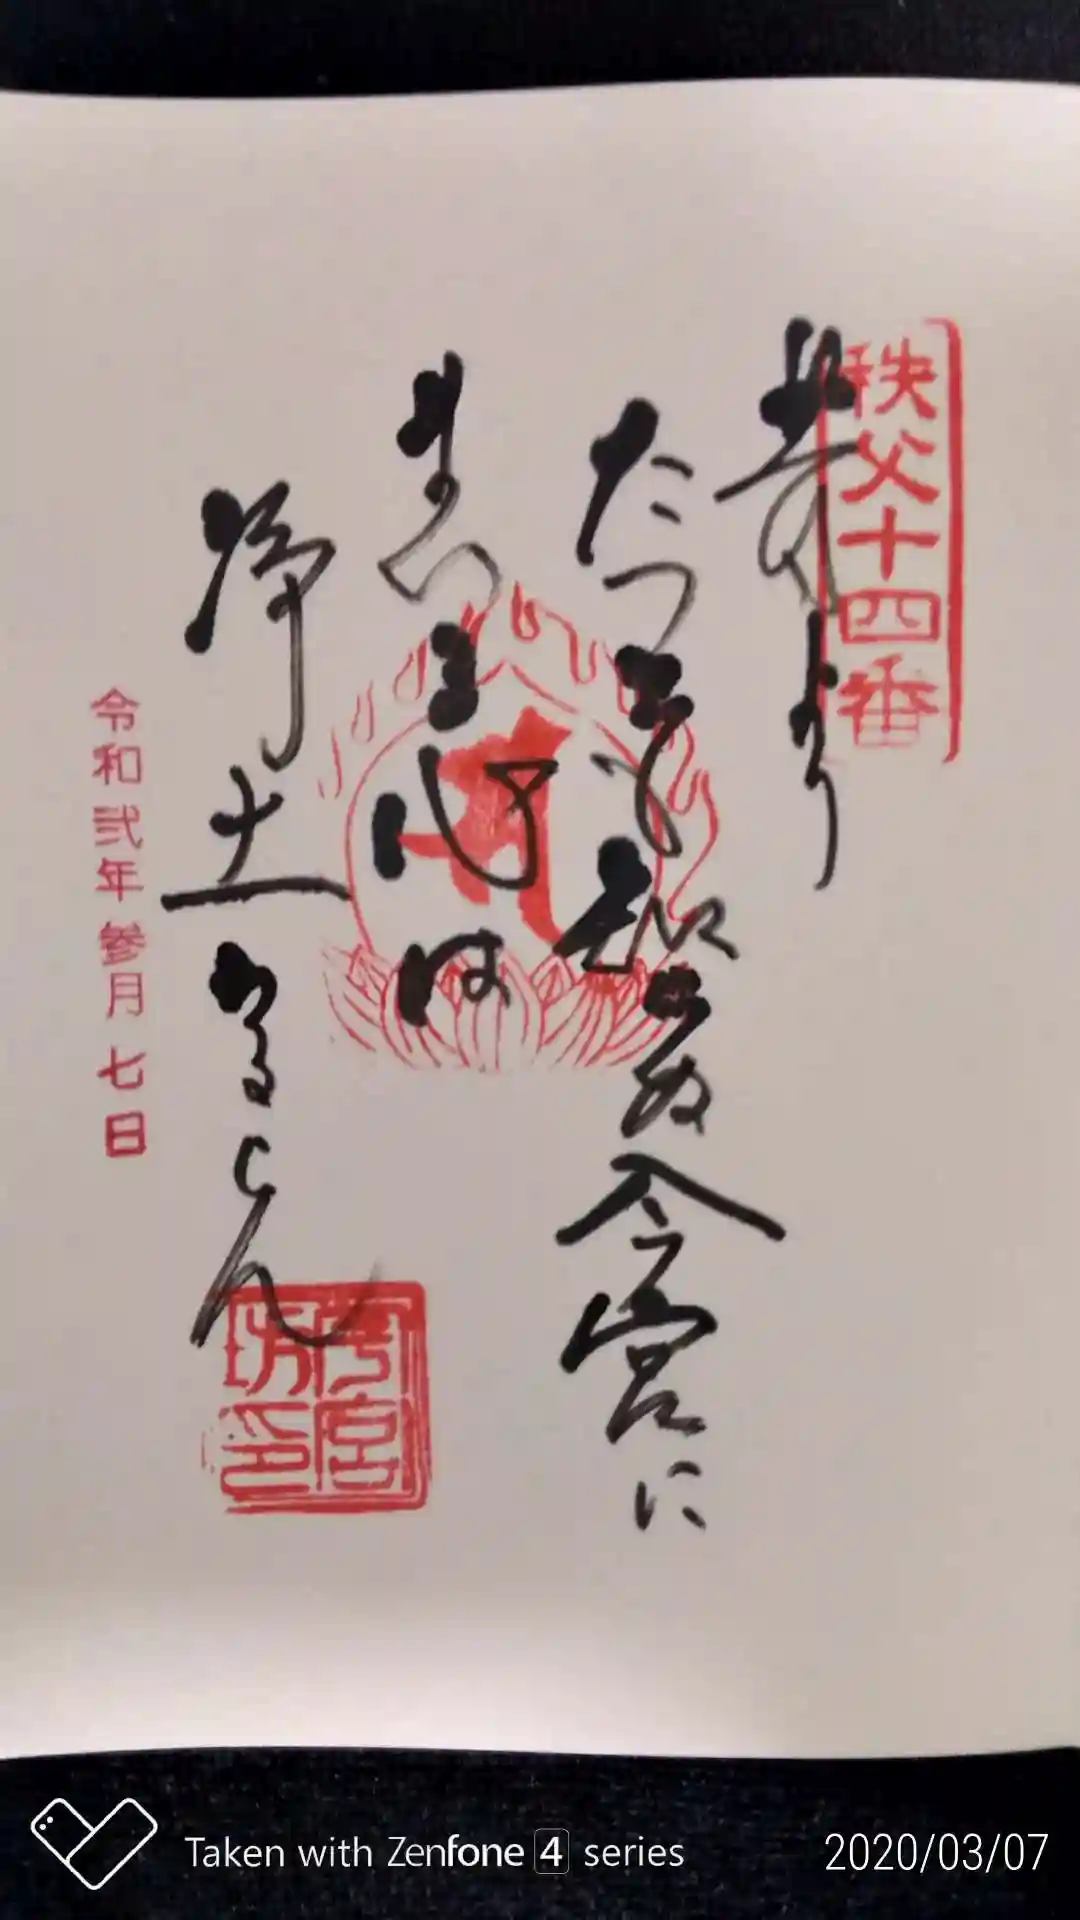 秩父十四番
昔より
たつともしらぬ今宮に
まいる心は
浄土なるらん
令和弐年参月七日
今宮坊印
Taken with Zenfone 4 series
2020/03/07